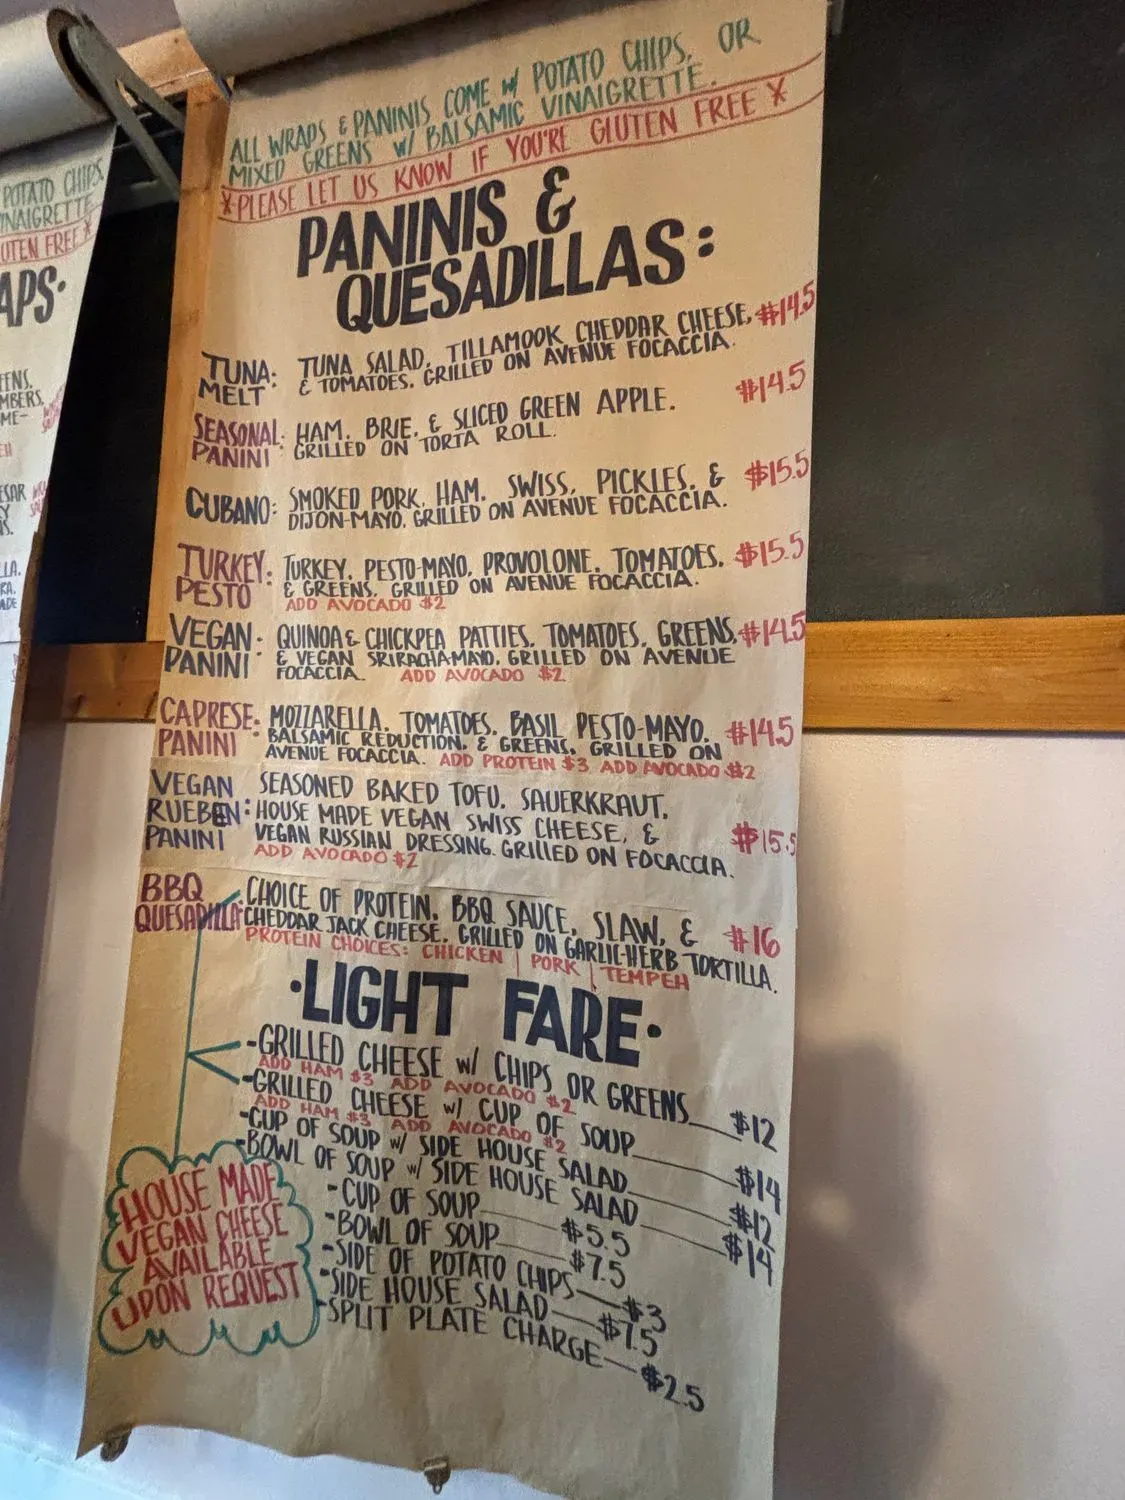 ALL WRAPS & PANINIS COME W/ POTATO CHIPS, OR
MIXED GREENS W/ BALSAMIC VINAIGRETTE.
*PLEASE LET US KNOW IF YOU'RE GLUTEN FREE*
PANINIS &
QUESADILLAS:
TUNA MELT: TUNA SALAD, TILLAMOOK CHEDDAR CHEESE, $14.5
& TOMATOES. GRILLED ON AVENUE FOCACCIA.
SEASONAL PANINI: HAM, BRIE, & SLICED GREEN APPLE. $14.5
GRILLED ON TORTA ROLL.
CUBANO: SMOKED PORK, HAM, SWISS, PICKLES, & $15.5
DIJON-MAYO. GRILLED ON AVENUE FOCACCIA.
TURKEY PESTO: TURKEY, PESTO-MAYO, PROVOLONE, TOMATOES, $15.5
& GREENS. GRILLED ON AVENUE FOCACCIA.
ADD AVOCADO $2
VEGAN PANINI: QUINOA & CHICKPEA PATTIES, TOMATOES, GREENS, $14.5
& VEGAN SRIRACHA-MAYO. GRILLED ON AVENUE
FOCACCIA. ADD AVOCADO $2
CAPRESE PANINI: MOZZARELLA, TOMATOES, BASIL PESTO-MAYO, $14.5
BALSAMIC REDUCTION, & GREENS. GRILLED ON
AVENUE FOCACCIA. ADD PROTEIN $3 ADD AVOCADO $2
VEGAN RUEBEN PANINI: SEASONED BAKED TOFU, SAUERKRAUT,
HOUSE MADE VEGAN SWISS CHEESE, & $15.5
VEGAN RUSSIAN DRESSING. GRILLED ON FOCACCIA.
ADD AVOCADO $2
BBQ QUESADILLA: CHOICE OF PROTEIN, BBQ SAUCE, SLAW, & $16
CHEDDAR JACK CHEESE. GRILLED ON GARLIC-HERB TORTILLA.
PROTEIN CHOICES: CHICKEN | PORK | TEMPEH
·LIGHT FARE·
-GRILLED CHEESE W/ CHIPS OR GREENS $12
ADD HAM $3 ADD AVOCADO $2
-GRILLED CHEESE W/ CUP OF SOUP $14
ADD HAM $3 ADD AVOCADO $2
-CUP OF SOUP W/ SIDE HOUSE SALAD $12
-BOWL OF SOUP W/ SIDE HOUSE SALAD $14
-CUP OF SOUP $5.5
-BOWL OF SOUP $7.5
-SIDE OF POTATO CHIPS $3
-SIDE HOUSE SALAD $7.5
-SPLIT PLATE CHARGE $2.5
HOUSE MADE
VEGAN CHEESE
AVAILABLE
UPON REQUEST
POTATO CHIPS,